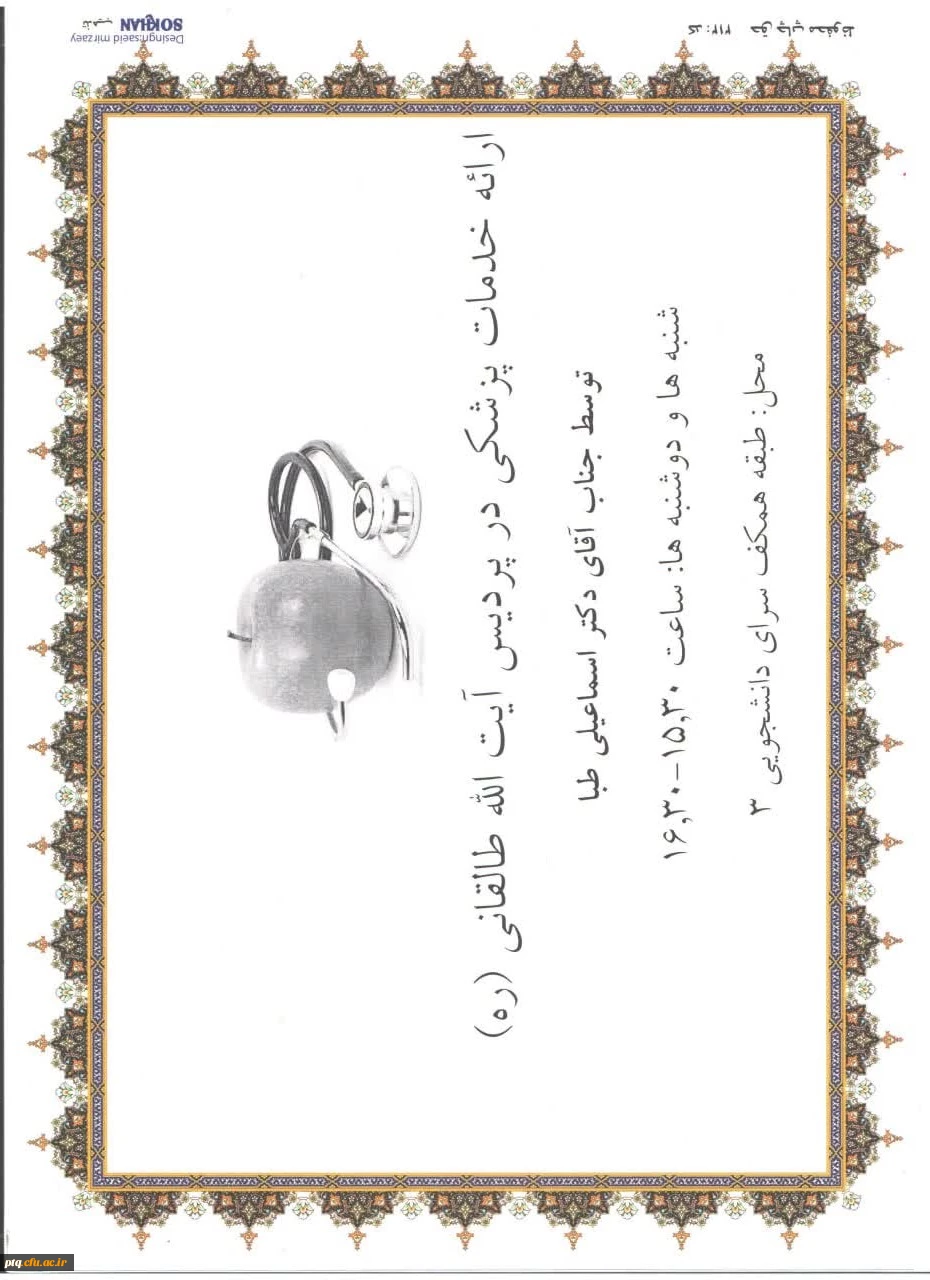 ارائه خدمات پزشکی در پردیس آیت الله طالقانی (ره)
توسط جناب آقای دکتر اسماعیلی طبا
شنبه ها و دوشنبه ها: ساعت ۱۶,۳۰-۱۵,۳۰
محل: طبقه همکف سرای دانشجویی ۳
حق چاپ محفوظ کد: ۲۱۲
SOKHAN
Desingn:saeid mirzaey
ptq.cfu.ac.ir